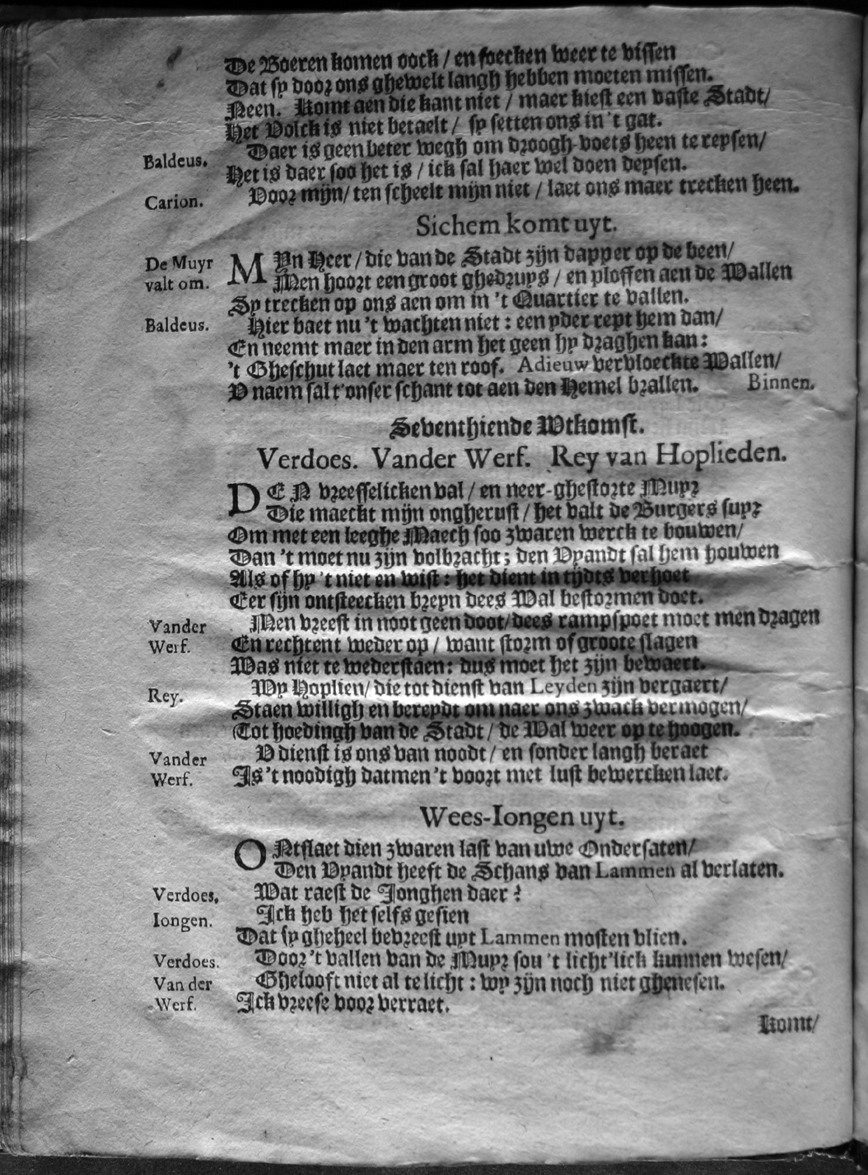 De Boeren komen oock / en soecken weer te vissen
Dat sy door ons ghewelt langh hebben moeten missen.
Neen. Komt aen die kant niet / maer kiest een vaste Stadt/
Het Volck is niet betaelt / sy setten ons in 't gat.
Baldeus. Daer is geen beter wegh om droogh-voets heen te reysen/
Het is daer soo het is / ick sal haer wel doen deysen.
Carion. Voor mijn / ten scheelt mijn niet / laet ons maer trecken heen.
Sichem komt uyt.
De Muyr valt om. MYn Heer / die van de Stadt zijn dapper op de been/
Men hoort een groot ghedruys / en ploffen aen de Wallen
Sy trecken op ons aen om in 't Quartier te vallen.
Baldeus. Hier baet nu 't wachten niet : een yder rept hem dan/
En neemt maer in den arm het geen hy draghen kan:
't Gheschut laet maer ten roof. Adieuw vervloeckte Wallen/
V naem sal t'onser schant tot aen den Hemel brallen. Binnen.
Seventhiende Wtkomst.
Verdoes. Vander Werf. Rey van Hoplieden.
DEN vreesselicken val / en neer-ghestorte Muyr
Die maeckt mijn ongherust / het valt de Burgers suyr
Om met een leeghe Maech soo zwaren werck te bouwen/
Dan 't moet nu zijn volbracht; den Vyandt sal hem houwen
Als of hy 't niet en wist : het dient in tijdts verhoet
Eer sijn ontsteecken breyn dees Wal bestormen doet.
Vander Werf. Men vreest in noot geen doot/dees rampspoet moet men dragen
En rechtent weder op / want storm of groote slagen
Was niet te wederstaen: dus moet het zijn bewaert.
Rey. Wy Hoplien / die tot dienst van Leyden zijn vergaert/
Staen willigh en bereydt om naer ons zwack vermogen/
Tot hoedingh van de Stadt / de Wal weer op te hoogen.
Vander Werf. V dienst is ons van noodt / en sonder langh beraet
Is 't noodigh datmen 't voort met lust bewercken laet.
Wees-Iongen uyt.
ONtslaet dien zwaren last van uwe Ondersaten/
Den Vyandt heeft de Schans van Lammen al verlaten.
Verdoes. Wat raest de Jonghen daer ?
Iongen. Ick heb het selfs gesien
Dat sy gheheel bevreest uyt Lammen mosten vlien.
Verdoes. Door 't vallen van de Muyr sou 't licht'lick kunnen wesen/
Van der Werf. Ghelooft niet al te licht : wy zijn noch niet ghenesen.
Ick vreese voor verraet.
Komt/